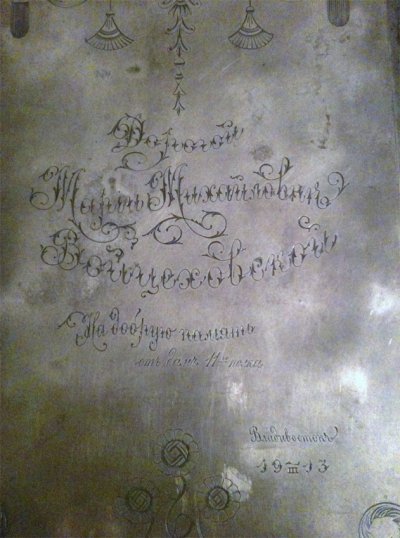 Дорогой
Марии Михайловне
Войцеховской
На добрую память
отъ дамъ 11го полка
Владивостокъ
19 III 13